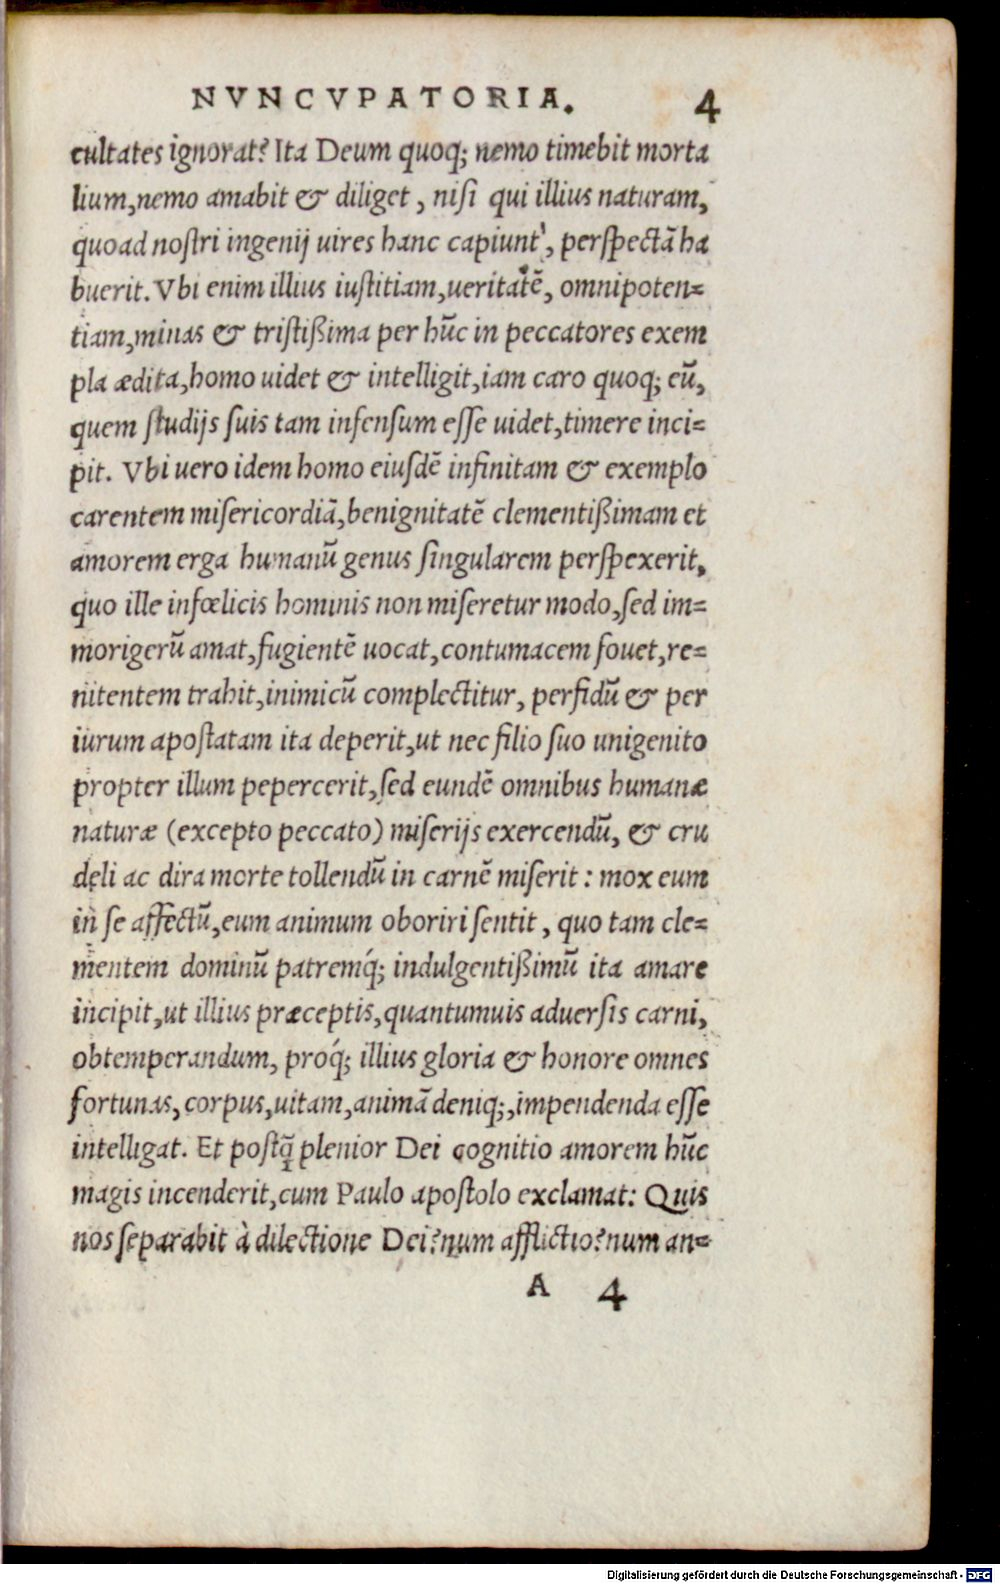 NVNCVPATORIA. 4
cultates ignorat? Ita Deum quoq; nemo timebit morta
lium, nemo amabit & diliget, nisi qui illius naturam,
quoad nostri ingenij uires hanc capiunt, perspectã ha
buerit. Vbi enim illius iustitiam, ueritatẽ, omnipoten=
tiam, minas & tristißima per hũc in peccatores exem
pla ædita, homo uidet & intelligit, iam caro quoq; eũ,
quem studijs suis tam infensum esse uidet, timere inci=
pit. Vbi uero idem homo eiusdẽ infinitam & exemplo
carentem misericordiã, benignitatẽ clementißimam et
amorem erga humanũ genus singularem perspexerit,
quo ille infœlicis hominis non miseretur modo, sed im=
morigerũ amat, fugientẽ uocat, contumacem fouet, re=
nitentem trahit, inimicũ complectitur, perfidũ & per
iurum apostatam ita deperit, ut nec filio suo unigenito
propter illum pepercerit, sed eundẽ omnibus humanæ
naturæ (excepto peccato) miserijs exercendũ, & cru
deli ac dira morte tollendũ in carnẽ miserit: mox eum
in se affectũ, eum animum oboriri sentit, quo tam cle=
mentem dominũ patremq́; indulgentißimũ ita amare
incipit, ut illius præceptis, quantumuis aduersis carni,
obtemperandum, proq́; illius gloria & honore omnes
fortunas, corpus, uitam, animã deniq;, impendenda esse
intelligat. Et postq̃ plenior Dei cognitio amorem hũc
magis incenderit, cum Paulo apostolo exclamat: Quis
nos separabit à dilectione Dei? num afflictio? num an=
A 4
Digitalisierung gefördert durch die Deutsche Forschungsgemeinschaft - DFG